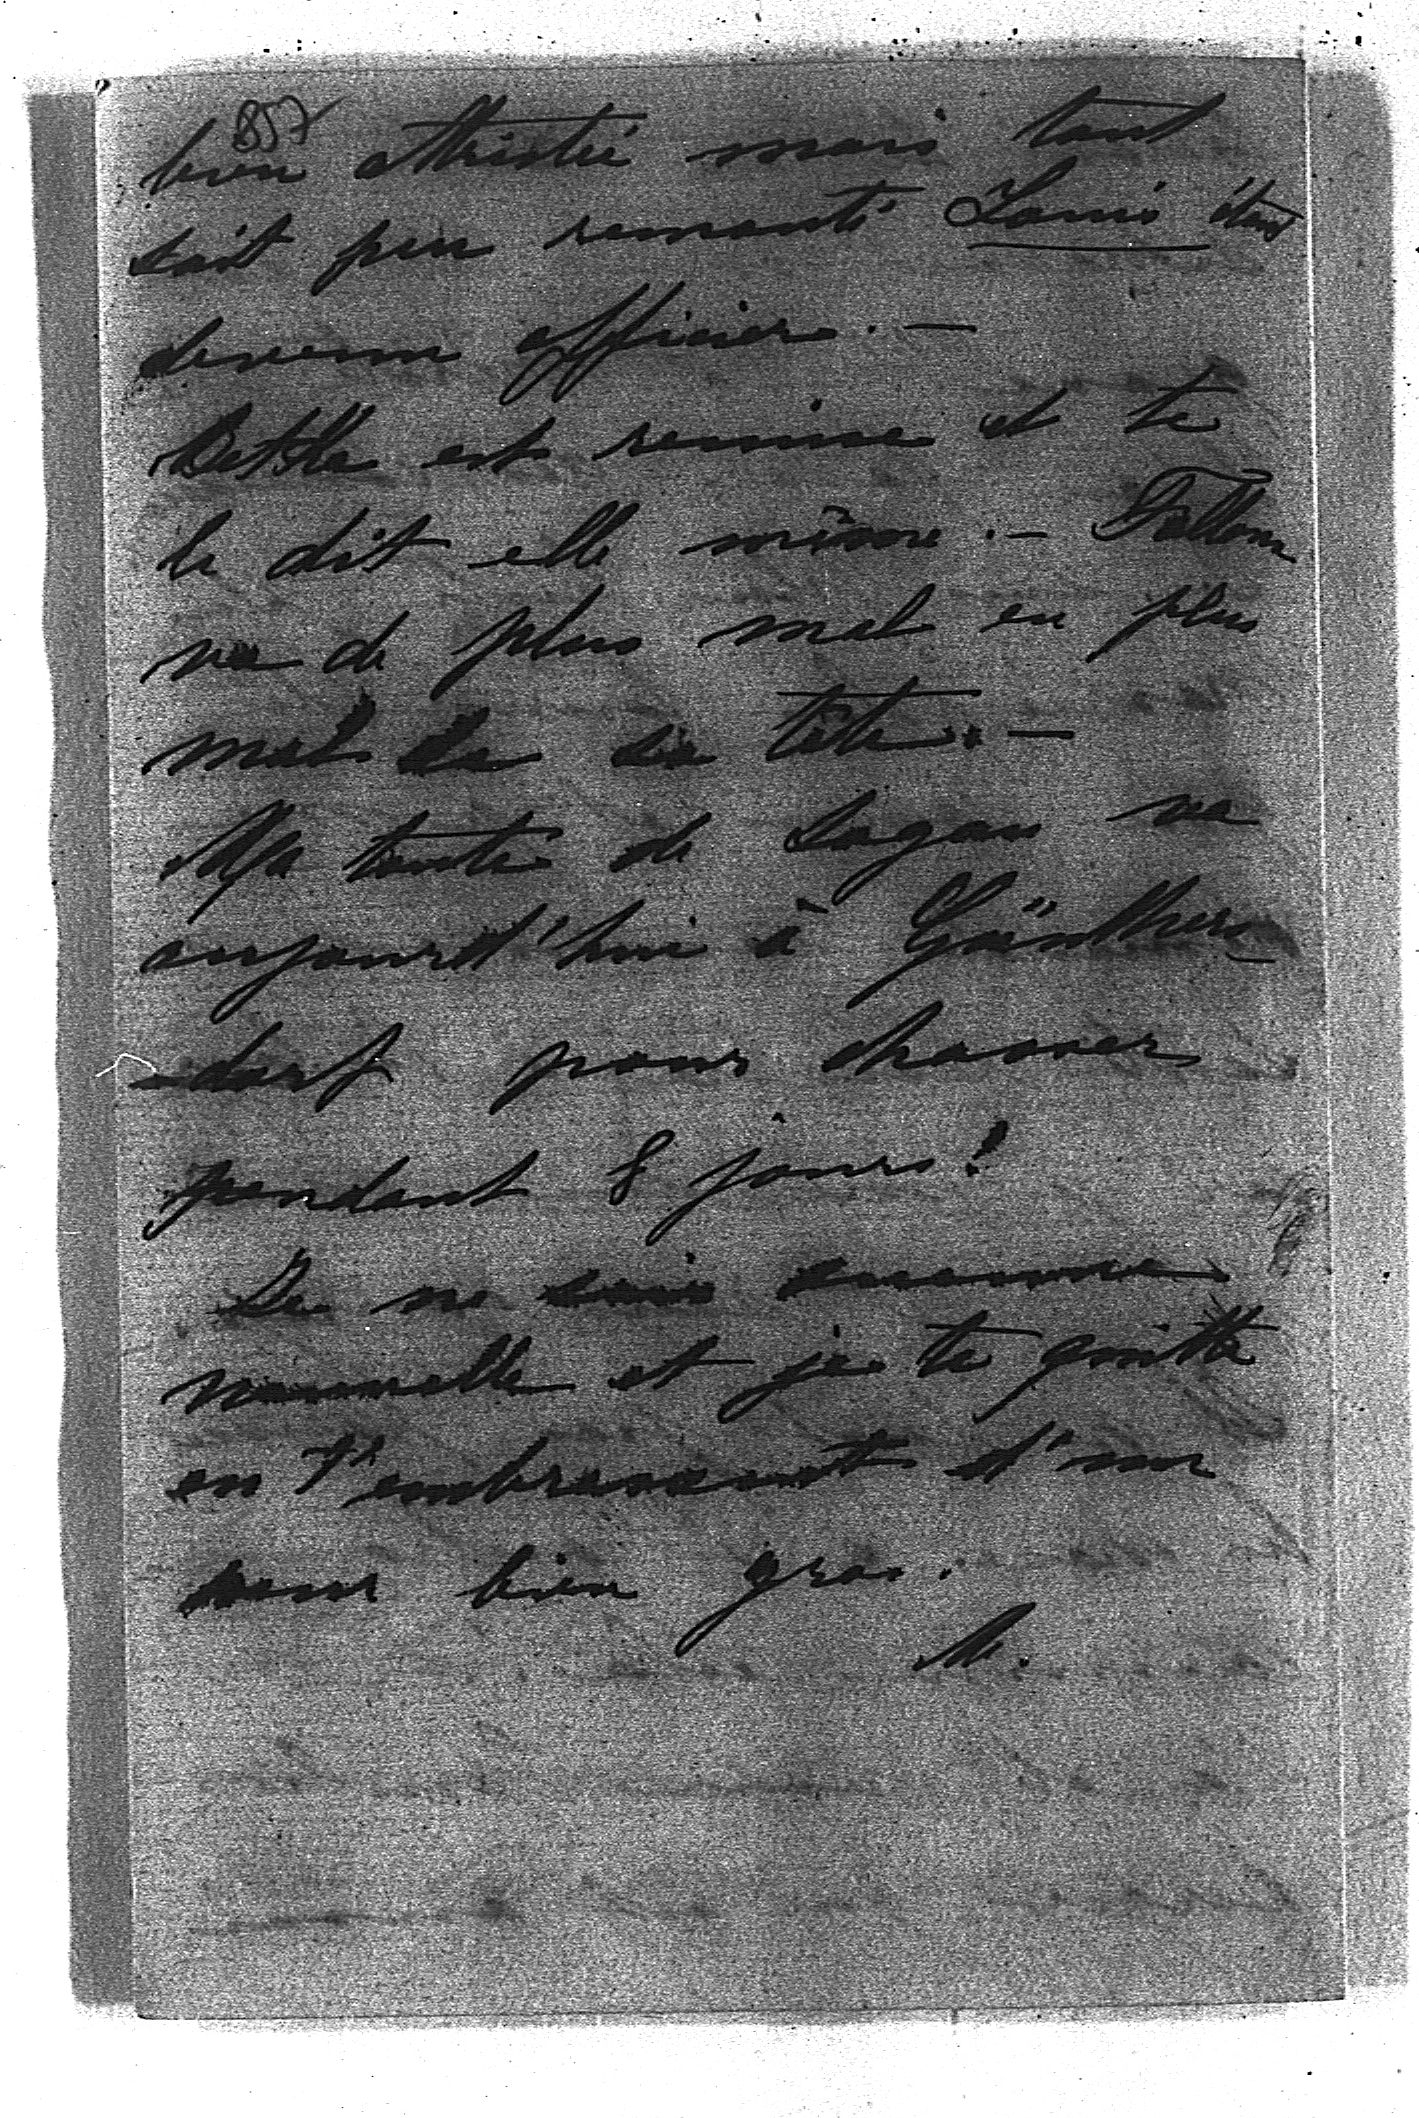 857
bien attristée mais tant
soit peu remonté Louis étant
devenu officier. —
Betka est remise et te
le dit elle même. — Tallon
va de plus mal en plus
mal de sa tête. —
Ma tante de Sagan va
aujourd'hui à Günthers-
dorf pour chasser
pendant 8 jours!
Je ne sais aucune
nouvelle et je te quitte
en t'embrassant d'un
cœur bien gros.
M.